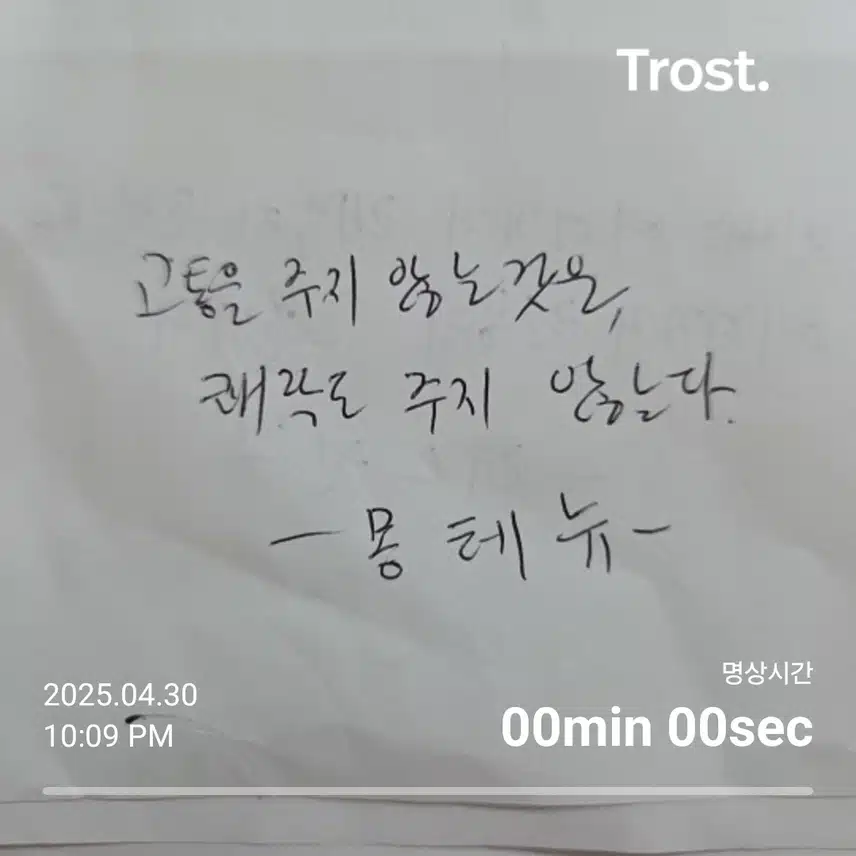 Trost.
고통을 주지 않는것은,
쾌락도 주지 않는다.
- 몽테뉴 -
명상시간
2025.04.30
00min 00sec
10:09 PM